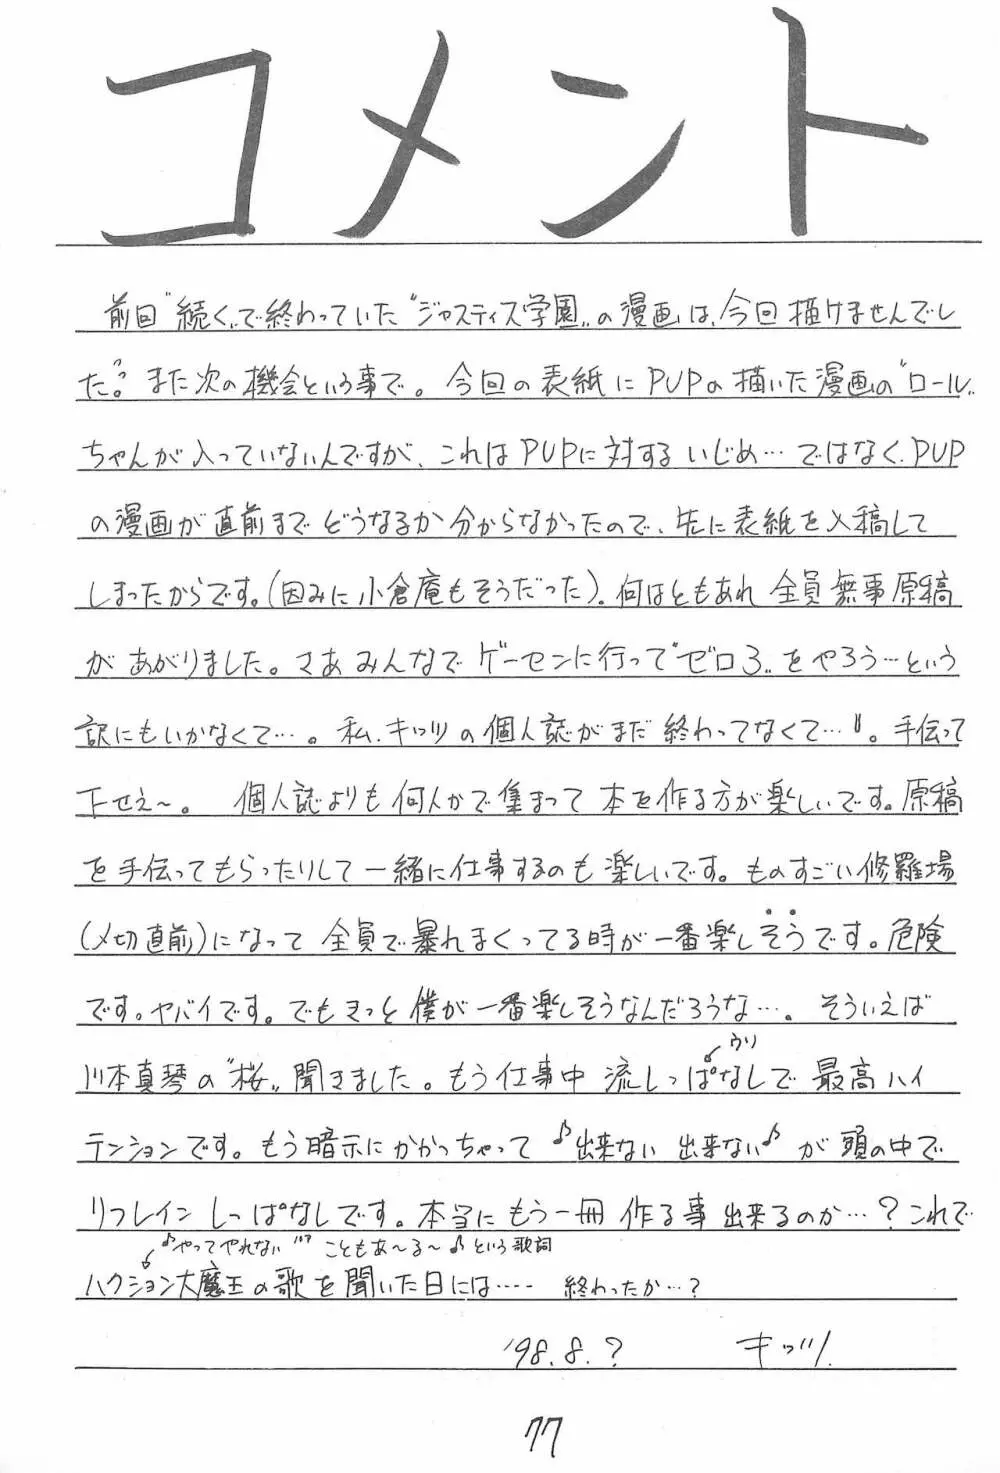 コメント
前回“続く〟で終わっていた“ジャスティス学園〟の漫画は、今回描けませんでし
た。また次の機会という事で。今回の表紙にPUPの描いた漫画の“ロール〟
ちゃんが入っていないんですが、これはPUPに対するいじめ…ではなく、PUP
の漫画が直前までどうなるか分からなかったので、先に表紙を入稿して
しまったからです。(因みに小倉庵もそうだった)。何はともあれ全員無事原稿
があがりました。さあみんなでゲーセンに行って“ゼロ3〟をやろう…という
訳にもいかなくて…。私、キッツの個人誌がまだ終わってなくて…。手伝って
下せえ〜。個人誌よりも何人かで集まって本を作る方が楽しいです。原稿
を手伝ってもらったりして一緒に仕事するのも楽しいです。ものすごい修羅場
(〆切直前)になって全員で暴れまくってる時が一番楽しそうです。危険
です。ヤバイです。でもきっと僕が一番楽しそうなんだろうな…。そういえば
ウソ
川本真琴の“桜〟聞きました。もう仕事中流しっぱなしで最高ハイ
テンションです。もう暗示にかかっちゃって♪出来ない出来ない♪が頭の中で
リフレインしっぱなしです。本当にもう一冊作る事出来るのか…?これで
♪やってやれないこともあ〜る〜♪という歌詞
ハクション大魔王の歌を聞いた日には……終わったか…?
'98.8.? キッツ
77